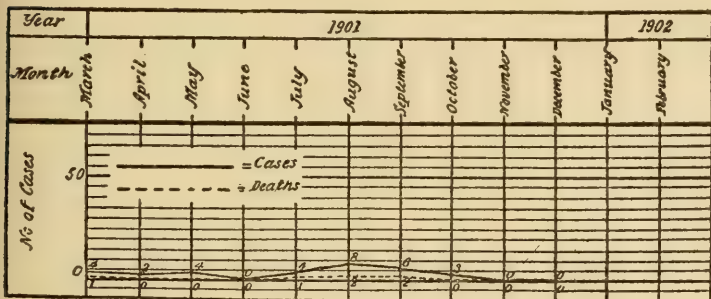 Year 1901 1902
Month March April May June July August September October November December January February
No of Cases
50
= Cases
= Deaths
0
4 0 8 6 3 0 0
1 0 0 0 1 2 2 0 0 0